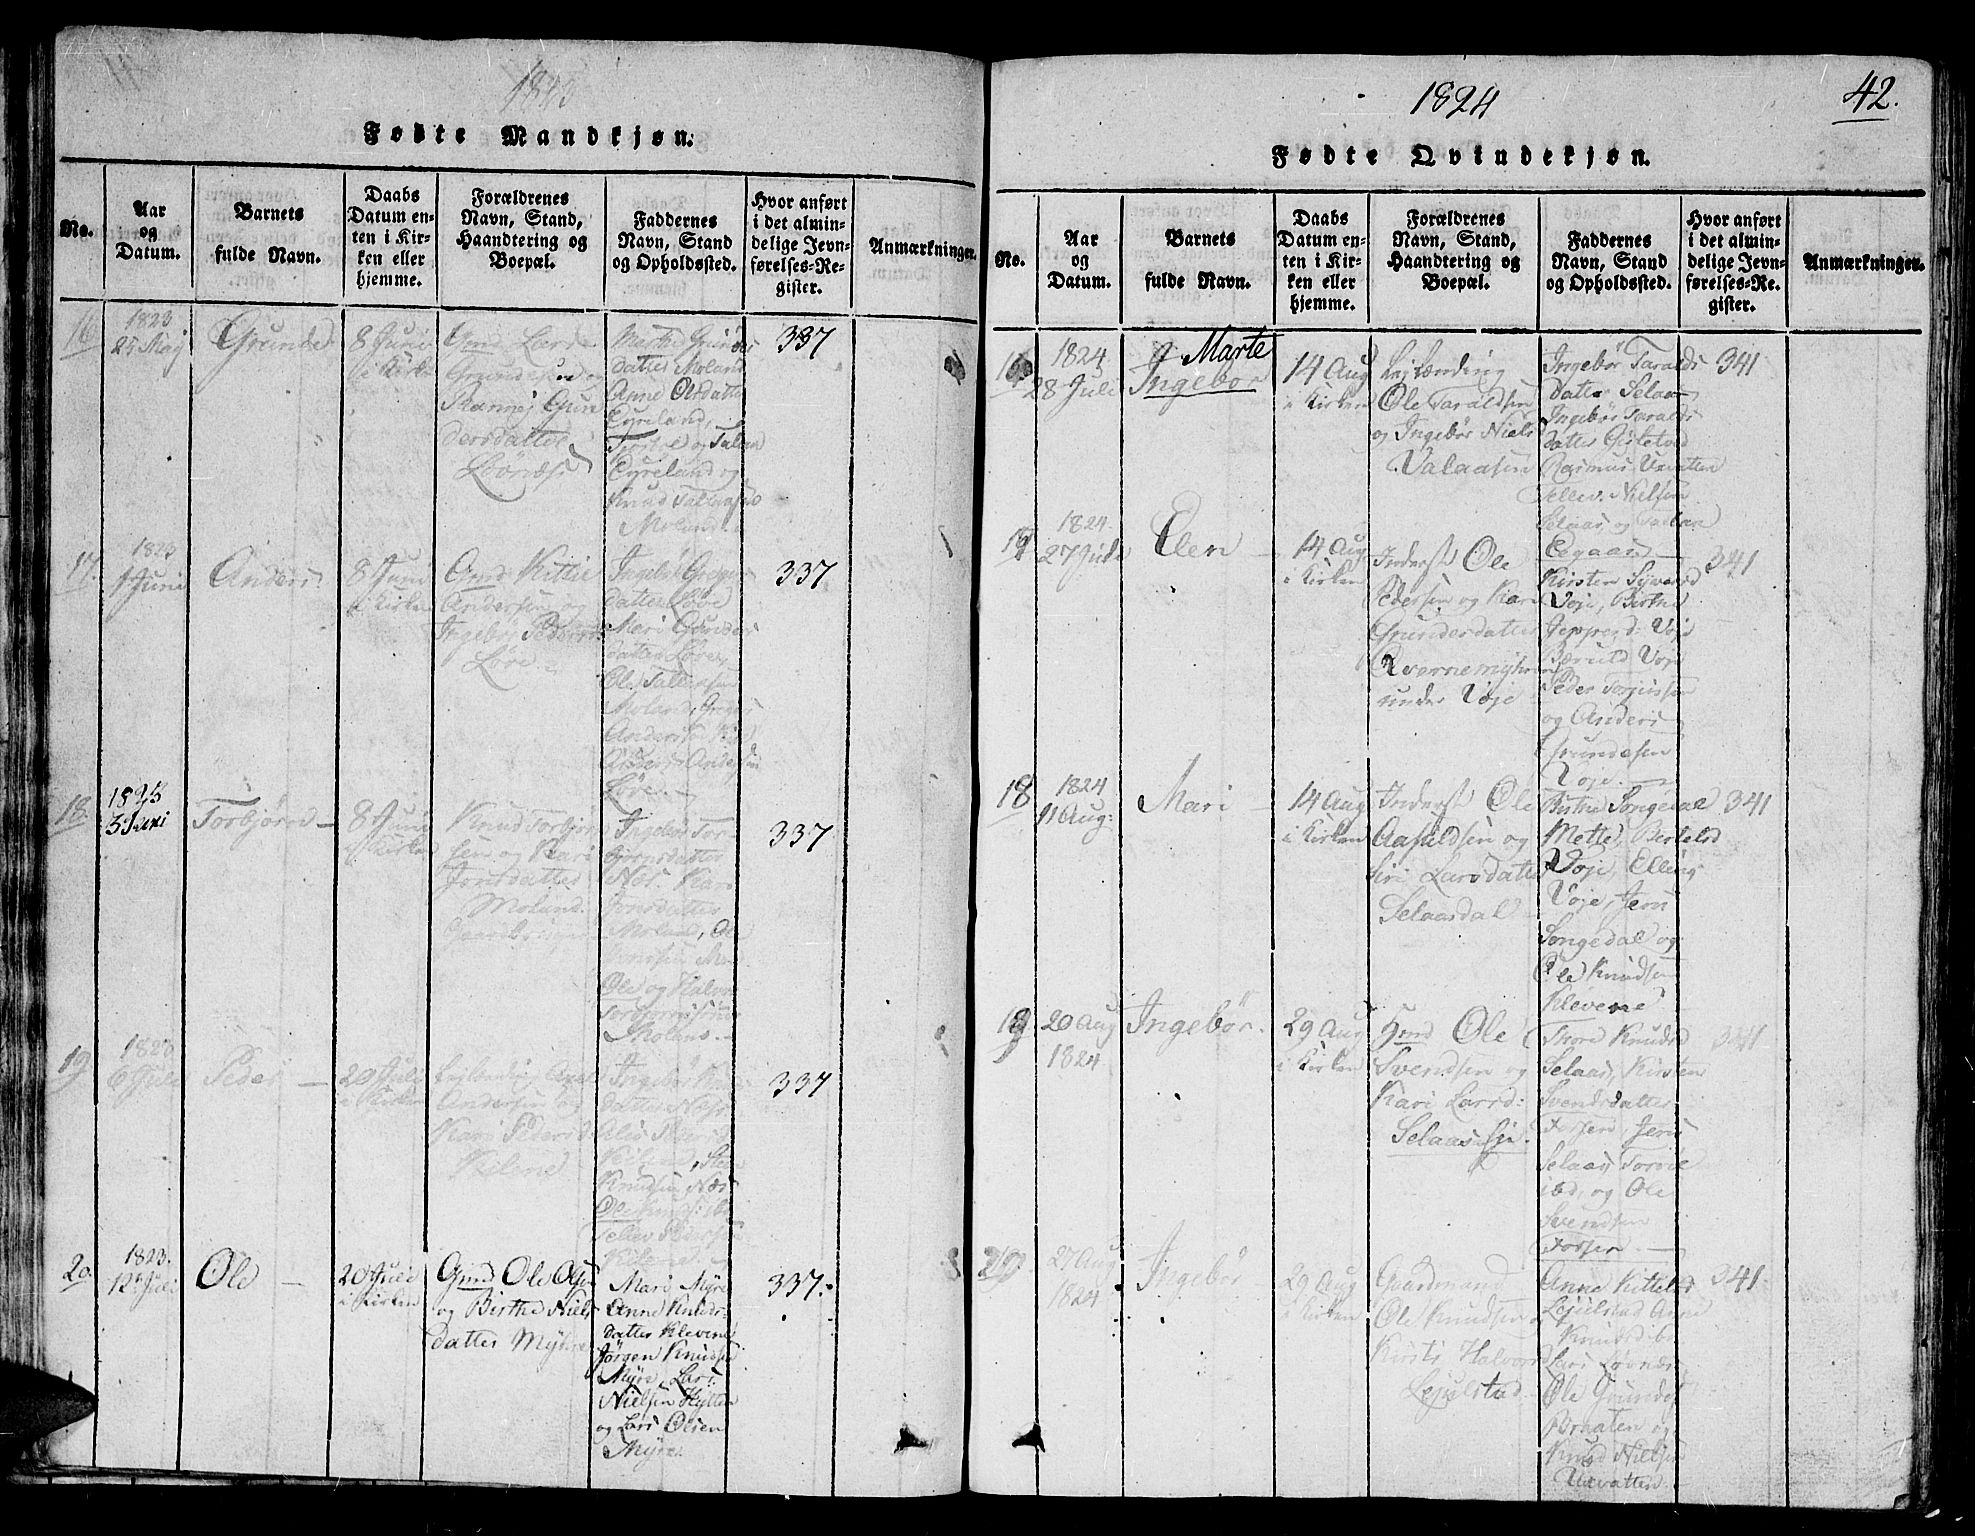 1823
Fødte Mandkjøn.
No.
Aar
og
Datum.
Barnets
fulde Navn.
Daabs
Datum en-
ten i Kir-
ken eller
hjemme.
Forældrenes
Navn, Stand,
Haandtering og
Boepæl.
Faddernes
Navn, Stand
og Opholdssted.
Hvor anført
i det almin-
delige Jevn-
førelses-Re-
gister.
Anmærkninger.
16
1823
25 Maj
Grunde
8 Juni
i Kirk
Gmd Lars
Grundesen og
Gun
dersdatter
Lønæs
Marthe Grundes
datter Moland
Anne Olsdatter
Eyveland,
og Tallan
Eyveland og
Knud Tallaksen
Moland.
337
17.
1823
1 Juni
Anders
8 Juni
i Kirken
Gmd Kittil
Andersen og
Ingebør Peders
Løve
Ingebør Greger
datter Løve
Mari Gunders
datter Løve,
Ole Tallaksen
Moland, Greger
Andersen
Anders Andersen
Løve.
337
18.
1823
3 Juni
Torbjørn
8 Juni
i Kirken
Knud Torbjørn
sen og Kari
Jonsdatter
Moland
Ingebør Tor-
bjørnsdatter
Næs. Kari
Jonsdatter
Moland, Ole
Ole og Halvor
Torbjørnsen
Moland.
337
19
1823
6 Juli
Peder
20 Juli
i Kirken
Lejlænding
Andersen og
Kari Pedersd
Kilene
Ingebør Knuds
datter Næs
Kilene,
Knudsen Næs
Ole Knuds: ib.
Tellev Pedersen
Kilene.
337
20.
1823.
12te Juli
Ole
20 Juli
i Kirken
Gmd Ole Olsen
og Birthe Niels
datter Myhre
Mari Myre
Anne Knuds-
datter Klevene
Jørgen Knudsen
Myre, Lars
Nielsen Hytten
og Lars Olsen
Myre.
337.
1824
42.
Fødte Qvindekjøn.
No.
Aar
og
Datum.
Barnets
fulde Navn.
Daabs
Datum en-
ten i Kir-
ken eller
hjemme.
Forældrenes
Navn, Stand,
Haandtering og
Boepæl.
Faddernes
Navn, Stand
og Opholdssted.
Hvor anført
i det almin-
delige Jevn-
førelses-Re-
gister.
Anmærkninger.
16
1824
28 Juli
Marte
Ingebør
14 Aug
i Kirken
Lejlænding
Ole Taraldsen
og Ingebør Nielsd
Valaasen
Ingebør Taralds
datter Selaas
Ingebør Taralds
datter Gislestad
Rasmus Uvatten
Tellev. Nielsen
Selaas og Tarlan
Egaas
341
17
1824.
27 Juli
Elen
14 Aug
i Kirken
Inderst Ole
Pedersen og Kari
Grundesdatter
Qvernemyhren
under Voje
Kirsten Syversd
Voje, Birthe
Jeppesd: Voje
Beruld Voje
Peder Torjussen
og Anders
Grundesen
Voje.
341
18
1824
11 Aug:
Mari
14 Aug
i Kirken
Inderst Ole
Aasuldsen og
Siri Larsdatter
Selaasdal
Birthe Songedal
Mette Bertelsd
Voje, Elling
Voje, Jens
Songedal og
Ole Knudsen
Klevene
341
19
20 Aug
1824
Ingebør.
29 Aug
i Kirken
Hmd Ole
Svendsen og
Kari Larsd:
Selaas Eje.
Thore Knudsd
Selaas, Kirsten
Svendsdatter
Fossen, Jens
Selaas Torvil
ibd, og Ole
Svendsen
Fossen.
341
20.
27 Aug
1824
Ingebør
29 Aug
i Kirken
Gaardmand
Ole Knudsen og
Kirsti Halvorsd
Lejulstad.
Anne Kittelsd
Lejulstad Anne
Knudsd ib:
Lars Løvnæs
Ole Grundes
Braaten og
Knud Nielsen
Uvatten
341.